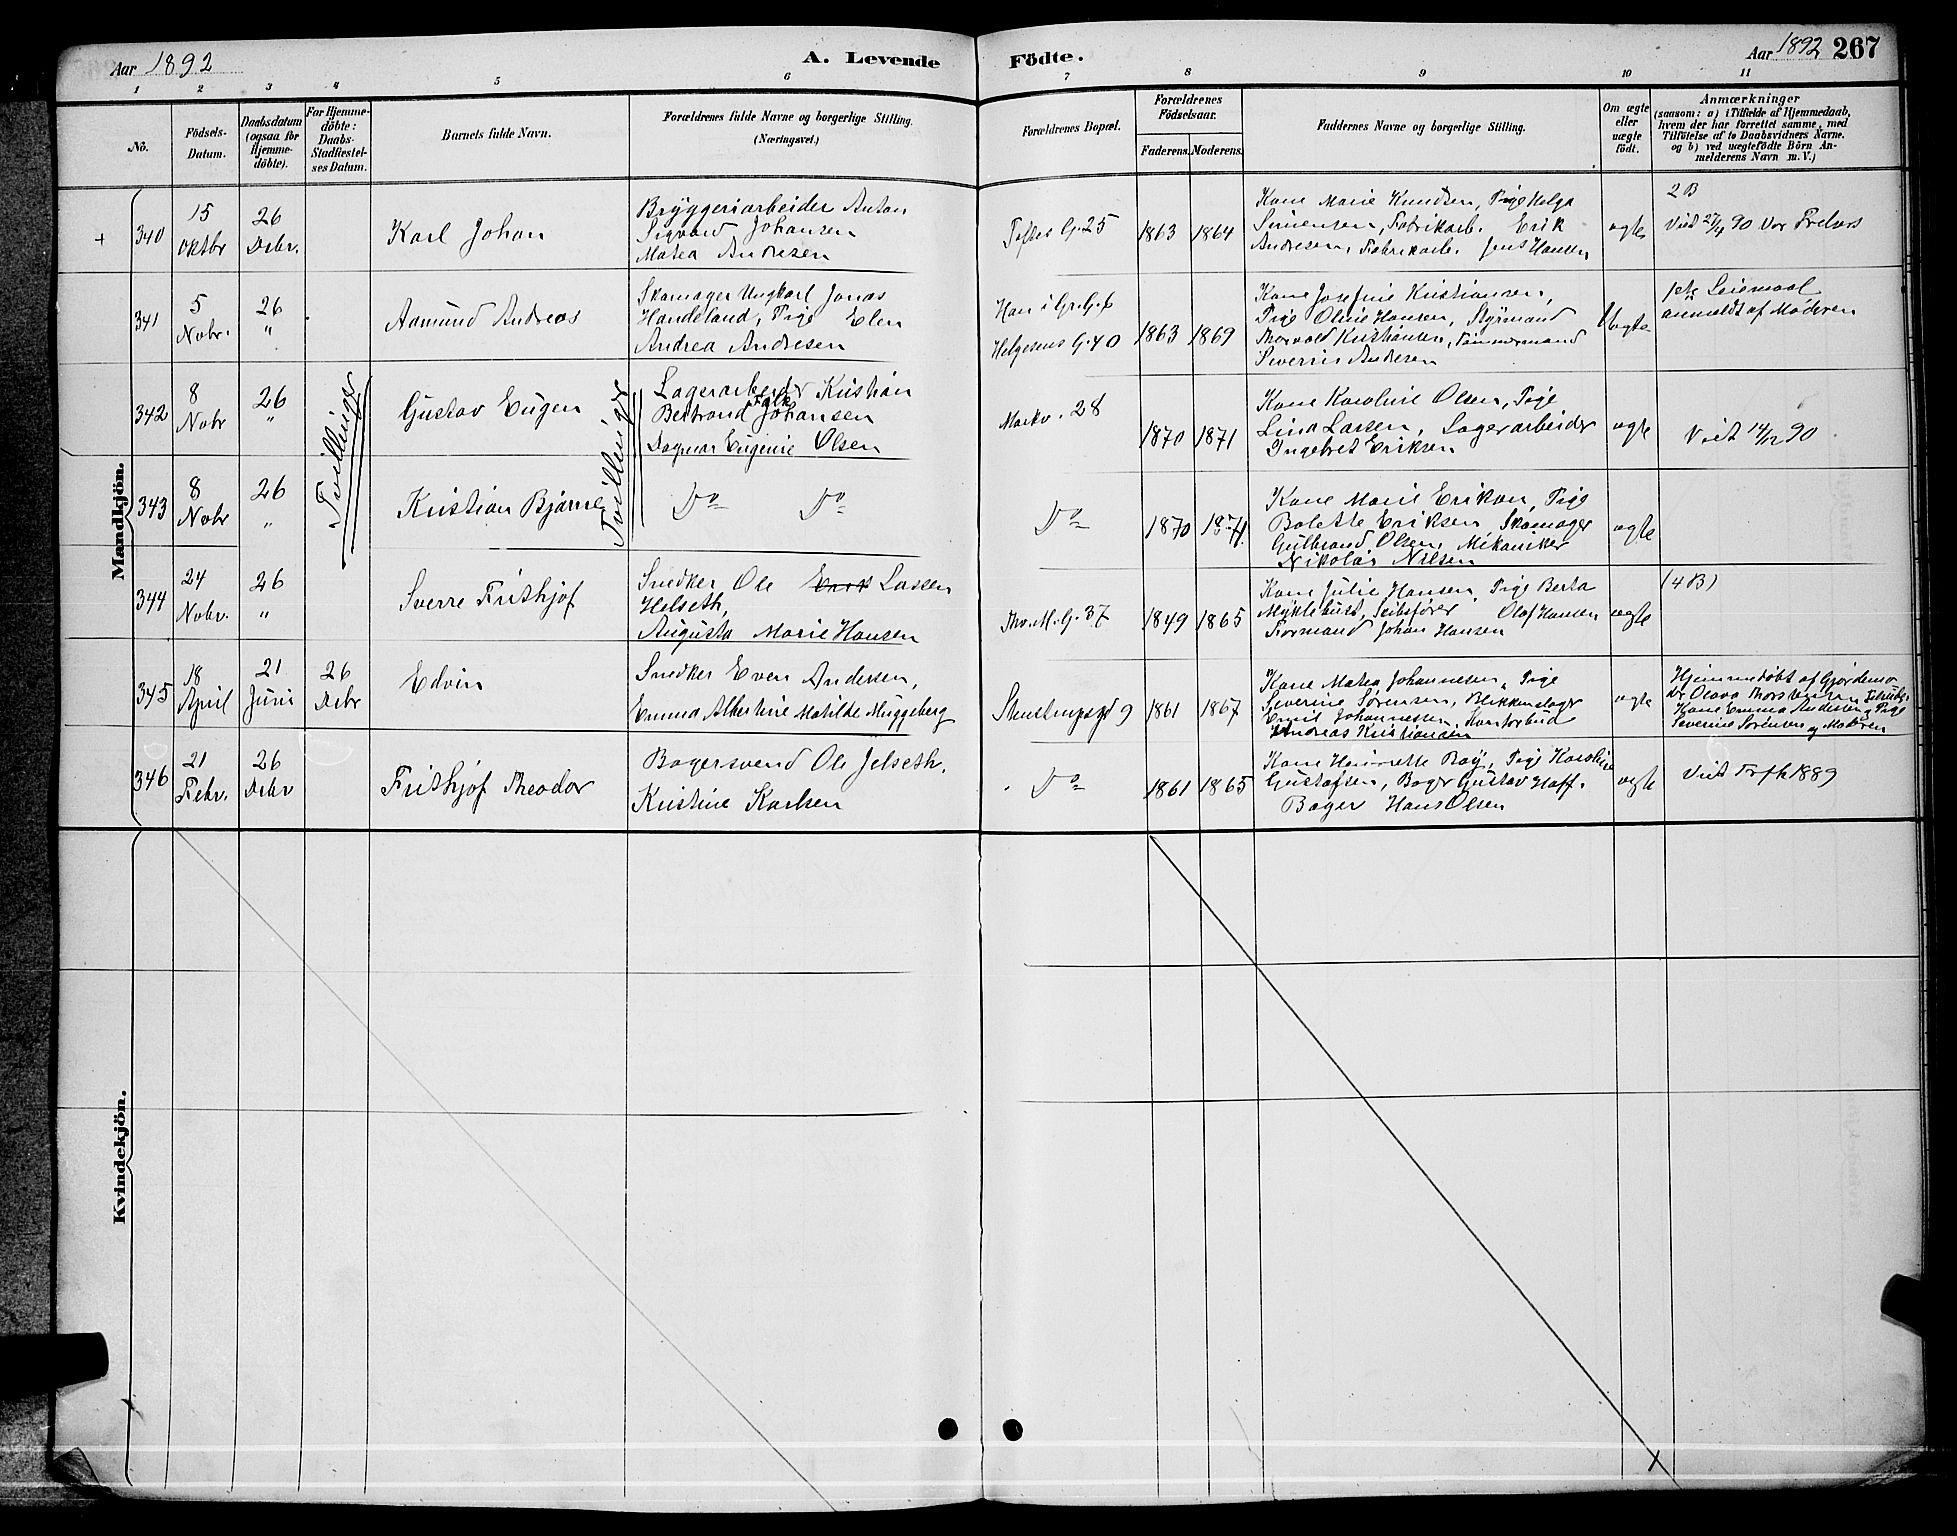 Aar 1892
A. Levende
Födte.
Aar 1892
267
1 2 3 4 5 6 7 8 9 10 11
No.
Födsels-
Datum.
Daabsdatum
(ogsaa for
Hjemme-
döbte).
For Hjemme-
döbte:
Daabs-
Stadfæstel-
ses Datum.
Barnets fulde Navn.
Forældrenes fulde Navne og borgerlige Stilling.
(Næringsvei.)
Forældrenes Bopæl.
Forældrenes
Födselsaar.
Faderens. Moderens.
Faddernes Navne og borgerlige Stilling.
Om ægte
eller
uægte
födt.
Anmærkninger
(saasom: a) i Tilfælde af Hjemmedaab,
hvem der har forrettet samme, med
Tilföielse af to Daabsvidners Navne.
og b) ved uægtefödte Börn An-
melderens Navn m. V.)
Mandkjön.
+ 340
15
oktbr
26
Debr.
Karl Johan
Bryggeriarbeider Anton
Sigvard Johansen
Matea Andresen
Toftes G. 25
1863 1864
Kone Marie Knudsen, Pige Helga
Simensen, Fabrikarb. Erik
Andresen, Fabrikarb. Jens Hansen
ægte
2 B
Viet 27/4 90 Vor Frelsers
341
5
Nobr.
26
"
Aamund Andreas
Skomager Ungkarl Jonas
Handeland, Pige Elen
Andrea Andresen
Han i Gr. G. 6
Helgesens G. 40
1863 1869
Kone Josefine Kristiansen,
Pige Olivie Hansen, Styrmand
Thorvald Kristiansen, Tömmermand
Severin Andresen
Uægte
1ste Leiemaal
anmeldt af Moderen
342
8
Nobr
26
"
Tvillinger
Gustav Eugen
Tvillinger
Lagerarbeider Kristian
Bertrand Falk Johansen
Dagmar Eugenie Olsen
Markv. 28
1870 1871
Kone Karoline Olsen, Pige
Lina Larsen, Lagerarbeider
Ingebret Eriksen
ægte
Viet 14/12 90
343
8
Nobr
26
"
Kristian Bjarne
Do Do
Do
1870 1871.
Kone Marie Erikson, Pige
Bolette Eriksen, Skomager
Gulbrand Olsen, Mekaniker
Nikolai Nilsen
ægte
344
24
Nobr.
26
"
Sverre Frithjof
Snedker Ole Larsen
Helseth,
Augusta Marie Hansen
Thv. M. G. 37
1849 1865
Kone Julie Hansen, Pige Berta
Myklebust, Skibsfører Olaf Hansen
Formand Johan Hansen
ægte
(4 B)
345
18
April
21
Juni
26
Debr
Edvin
Snedker Even Andersen,
Emma Albertine Matilde Muggeberg
Stenstrupsgd 9
1861 1867
Kone Matea Johannesen, Pige
Severine Sørensen, Blikkenslager
Emil Johannessen, Kontorbud
Andreas Kristiansen
ægte
Hjemmedøbt af Gjordemo
der Olava Thorstensen
Kone Emma Andersen, Pige
Severine Sørensen og Moderen
346
21
Febr.
26
Debr
Frithjof Theodor
Bagersvend Ole Jelseth,
Kristine Karlsen
Do
1861 1865
Kone Henriette Roy, Pige Karoline
Gustafsen, Bager Gustav Hoff.
Bager Hans Olsen
ægte
Viet Frfk 1889
Kvindekjön.